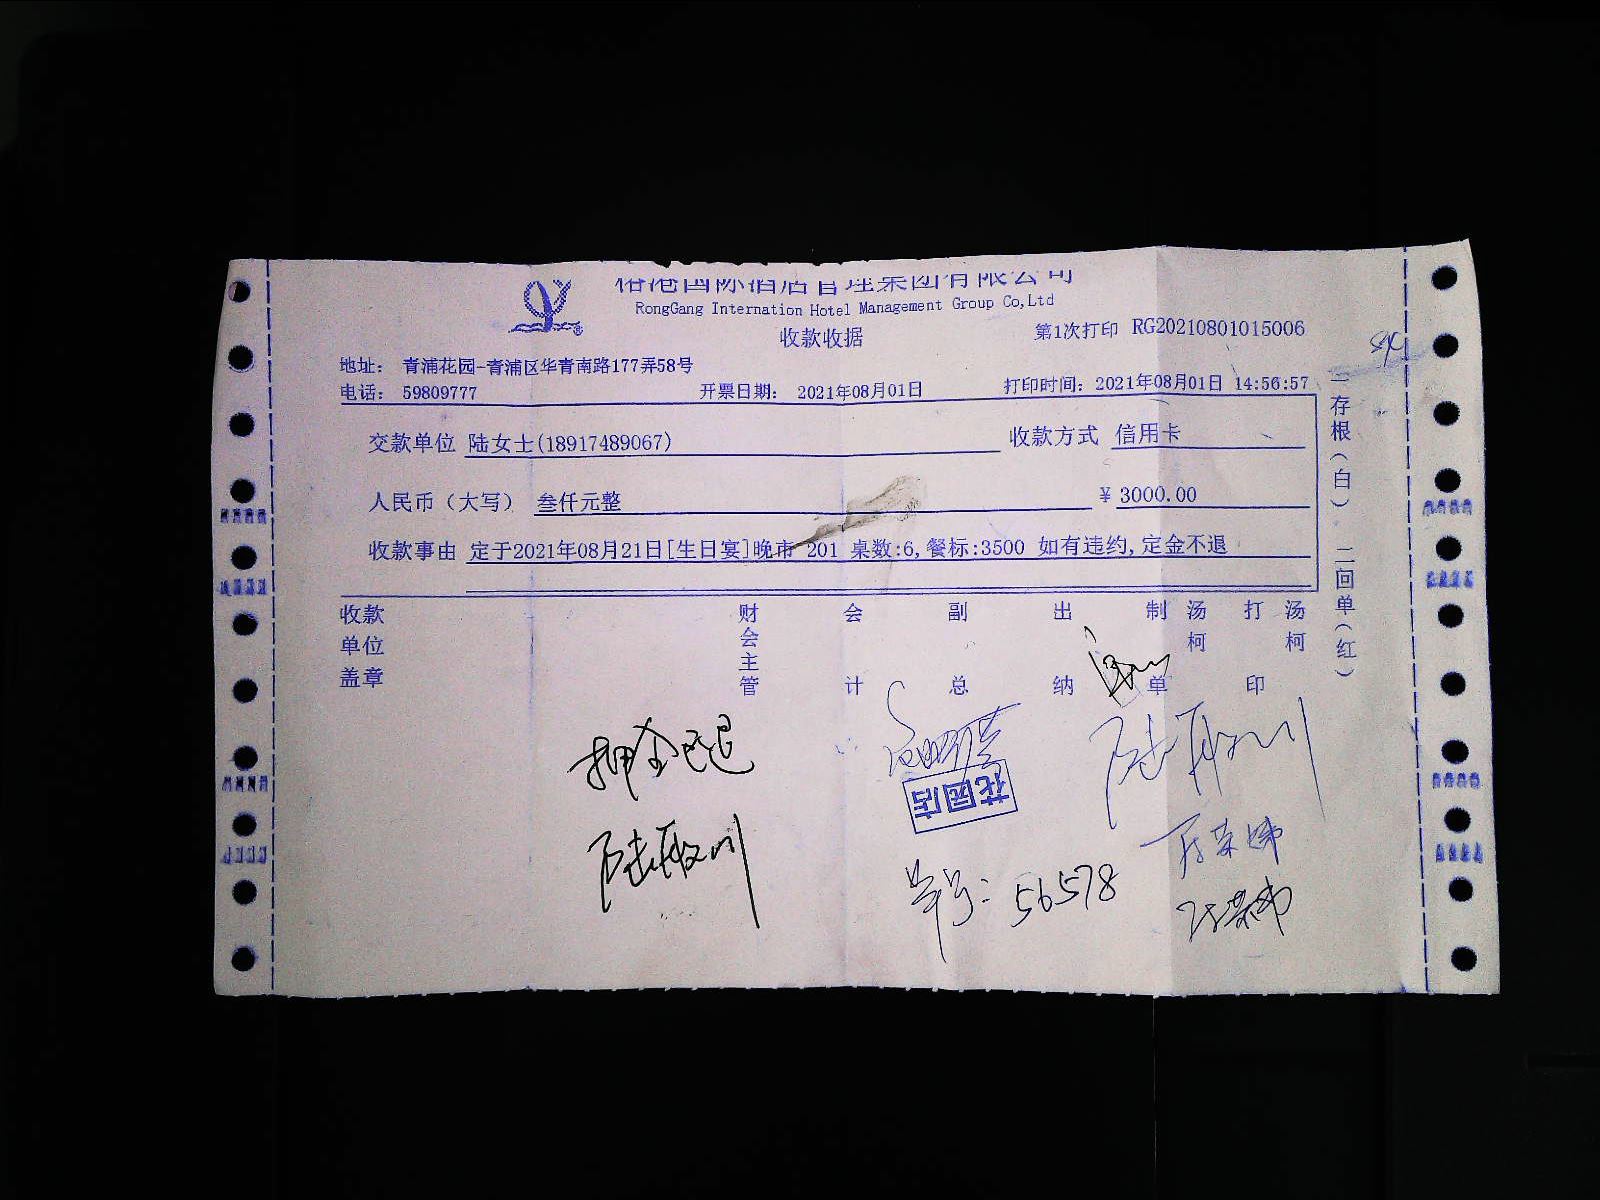 港国际酒店管理集团有限公司
RongGang Internation Hotel Management Group Co,Ltd
收款收据
第1次打印 RG20210801015006
地址: 青浦花园-青浦区华青南路177弄58号
电话: 59809777 开票日期: 2021年08月01日 打印时间: 2021年08月01日 14:56:57
交款单位 陆女士(18917489067) 收款方式 信用卡
人民币（大写） 叁仟元整 ￥ 3000.00
收款事由 定于2021年08月21日[生日宴]晚市 201 桌数:6,餐标:3500 如有违约,定金不退
一存根（白） 二回单（红）
收款单位盖章 财会主管 会计 副总 出纳 制单 汤柯 打印 汤柯
押金已退
花园店
单号: 56578